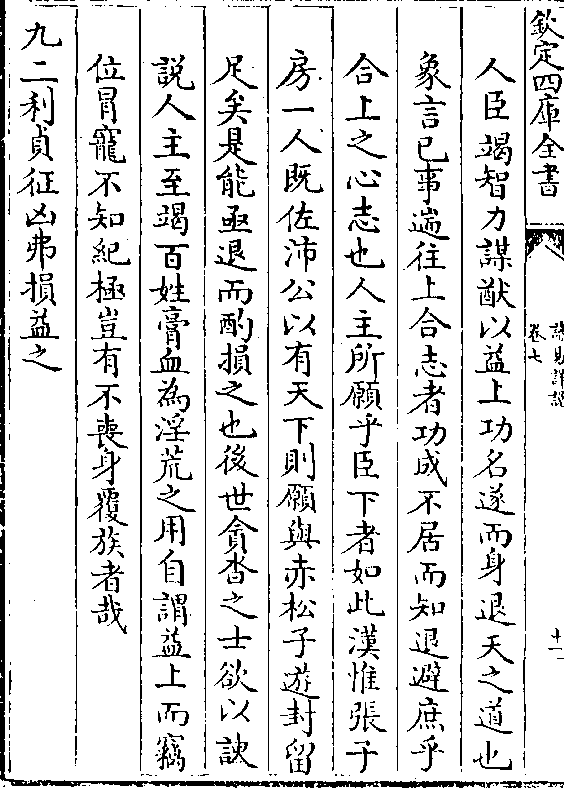 欽定四庫全書
卷七
十一
人臣竭智力謀猷以益上功名遂而身退天之道也
象言已事遄往上合志者功成不居而知退避庶乎
合上之心志也人主所願乎臣下者如此漢惟張子
房一人既佐沛公以有天下則願與赤松子遊封留
足矣是能亟退而酌損之也後世貪沓之士欲以諛
說人主至竭百姓膏血為淫荒之用自謂益上而竊
位冐寵不知紀極豈有不喪身覆族者哉
九二利貞征凶弗損益之